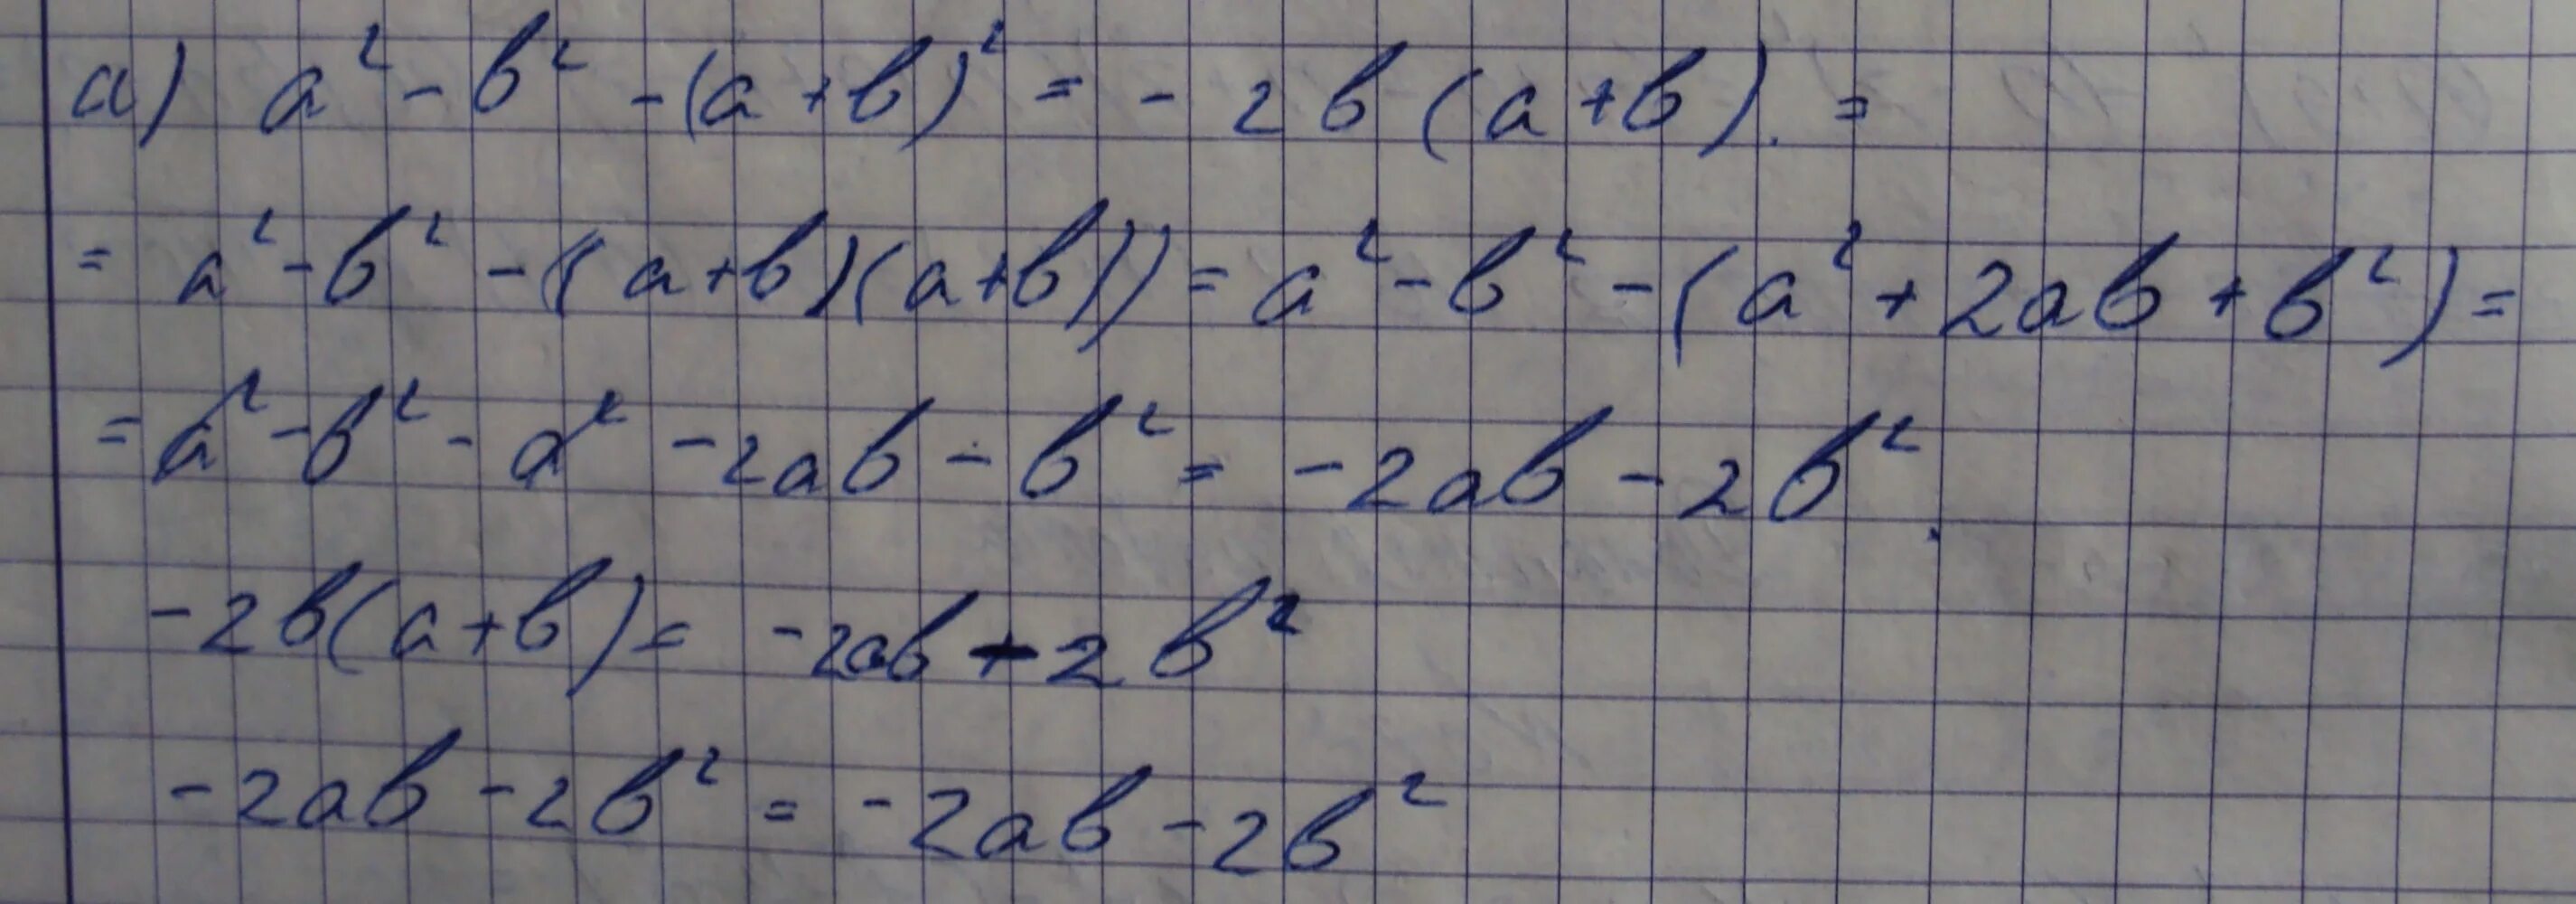 а) a² - b² - (a + b)² = - 2b (a + b). =
= a² - b² - ((a+b)(a+b)) = a² - b² - (a² + 2ab + b²) =
= a² - b² - a² - 2ab - b² = - 2ab - 2b².
- 2b(a+b) = - 2ab - 2b²
- 2ab - 2b² = - 2ab - 2b²